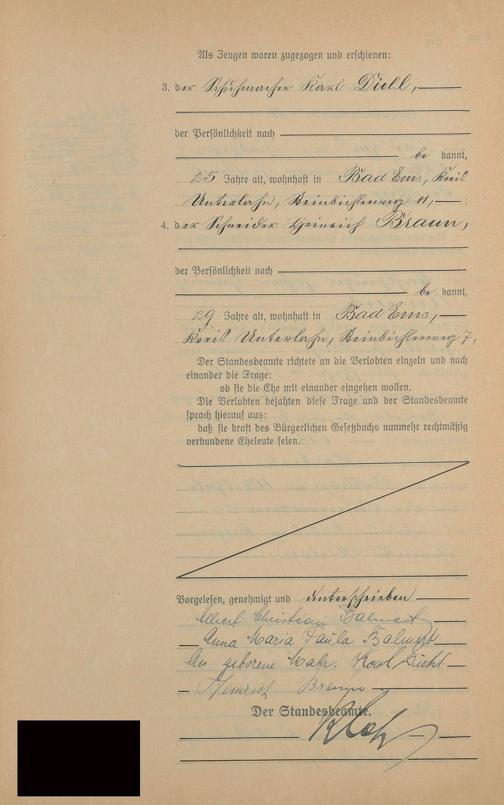 Als Zeugen waren zugezogen und erschienen:
3. der Schuhmacher Karl Diehl,
der Persönlichkeit nach
be kannt,
25 Jahre alt, wohnhaft in Bad Ems, Kreis
Unterlahn, 11,
4. der Schneider Heinrich Braun,
der Persönlichkeit nach
be kannt,
29 Jahre alt, wohnhaft in Bad Ems,
Kreis Unterlahn, 7,
Der Standesbeamte richtete an die Verlobten einzeln und nach
einander die Frage:
ob sie die Ehe mit einander eingehen wollen.
Die Verlobten bejahten diese Frage und der Standesbeamte
sprach hierauf aus:
daß sie kraft des Bürgerlichen Gesetzbuchs nunmehr rechtmäßig
verbundene Eheleute seien.
Vorgelesen, genehmigt und unterschrieben
Albert Christian
Anna Maria Paula
geborene Karl Diehl
Heinrich Braun
Der Standesbeamte.